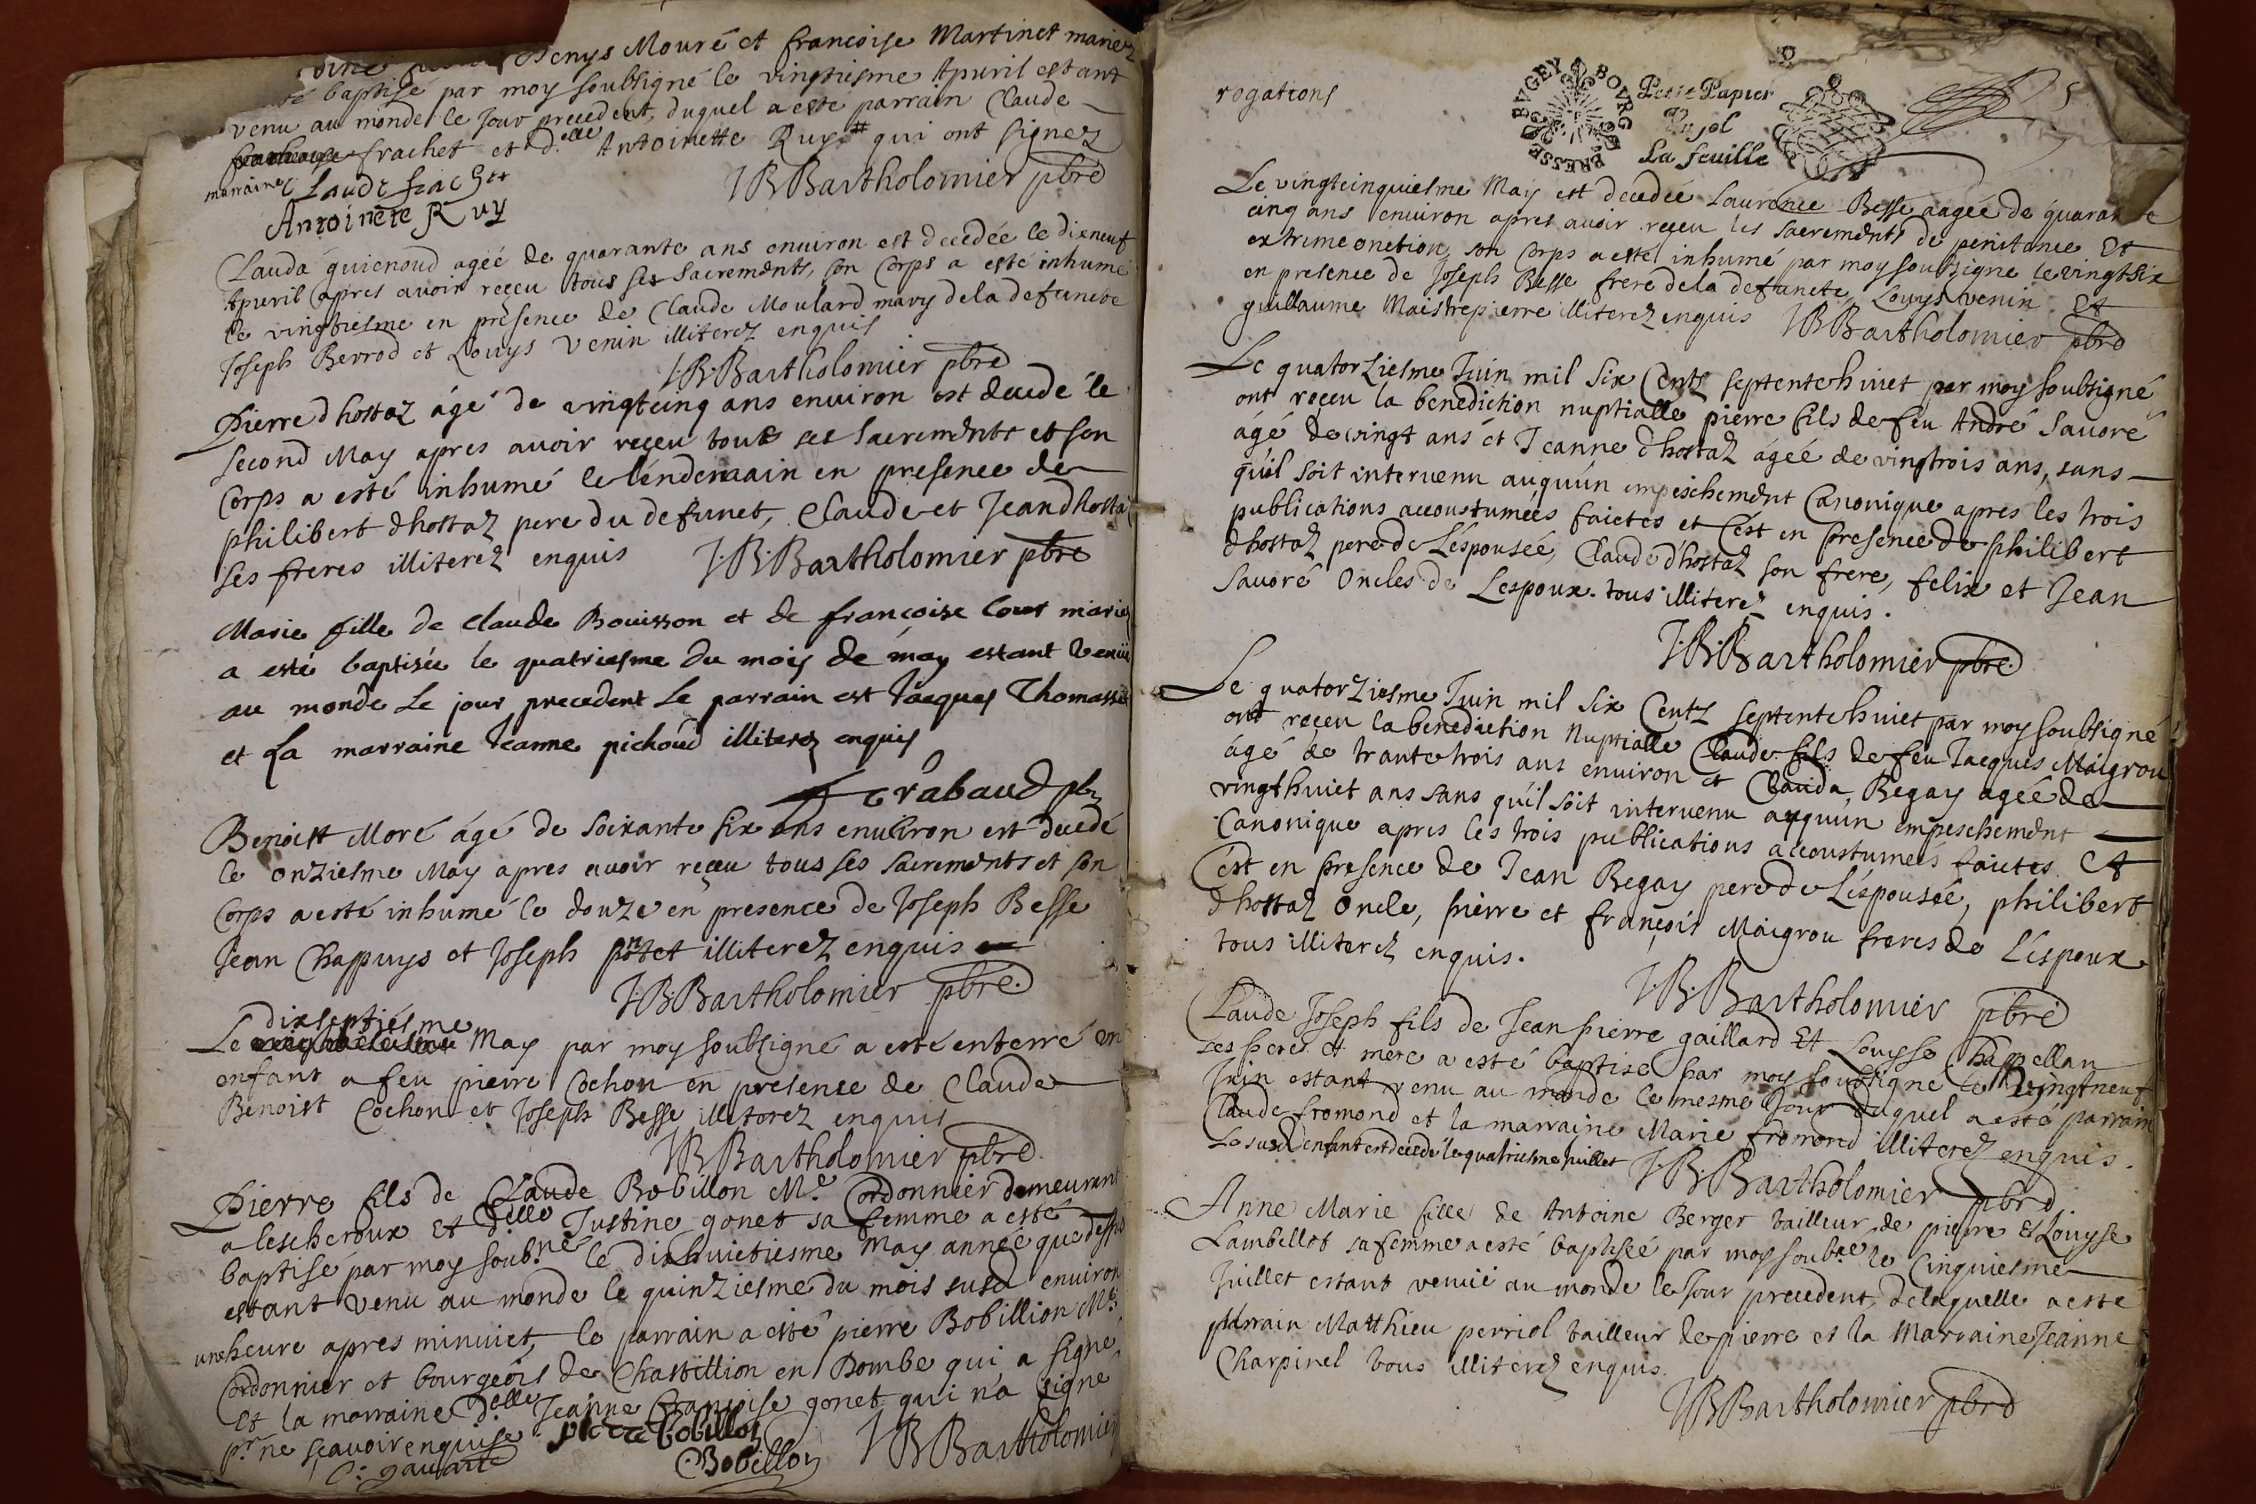 Denys Mouré et françoise Martinet mariez
baptisé par moy soubsigné le vingtiesme Apuril estant
venu au monde le jour precedent, duquel a esté parrain Claude
frachet et d.elle Antoinette Ruy # qui ont signez
marraine Claude frachet
JB Bartholomier pbre
Antoinete Ruy
Clauda guienoud agéé de quarante ans enuiron est decedée le dixneuf
Apuril apres auoir reçeu tous ses Sacrements, son Corps a esté inhumé
le vingtiesme en presence de Claude Moulard mary dela defuncte
Joseph Berrod et Louys Venin illiterez enquis
J.B.Bartholomier pbre
Pierre dhostaz ágé de vingtcinq ans enuiron est decedé le
second May apres auoir reçeu tous ses Sacrements et son
Corps a esté inhumé le lendemain en presence de
philibert dhostaz pere du defunct, Claude et Jean dhosta
ses freres illiterez enquis J.B.Bartholomier pbre
Marie fille de Claude Bouisson et de françoise Cour mariez
a esté baptisée le quatriesme du mois de may estant venüe
au monde Le jour precedent Le parrain est Jacques Thomass
et La marraine Jeanne pichoud illiterez enquis
Trabaud pbr
Benoist Moré ágé de soixante six ans enuiron est decedé
le onziesme May apres auoir reçeu tous ses sacrements et son
Corps a esté inhumé le douze en presence de Joseph Besse
Jean Chappuys et Joseph illiterez enquis
J.B.Bartholomier pbre.
dixseptiésme
Le May par moy soubsigné a esté enterré un
enfant a feu pierre Cochon en presence de Claude
Benoist Cochon et Joseph Besse illiterez enquis
JB Bartholomier pbre.
Pierre fils de Claude Bobillon M.e Cordonnier demeurant
a lescheroux Et d.elle Justine gonet sa femme a esté
baptisé par moy soub.né le dixhuictiesme May année que dessus
estant venu au monde le quinziesme du mois susd enuiron
une heure apres minuict, le parrain a esté pierre Bobillion M.e
Cordonnier et bourgeois de Chastillion en Dombe qui a signé
Et la marraine D.elle Jeanne françoise gonet qui n'a signé
p.r ne sçauoir enquise pierre bobillon
Bobillon JB Bartholomier
rogations
BVGEY BOVRG BRESSE
Petit Papier
Un sol
La feuille
5
Le vingtcinquiesme May est decedée Laurence Besse aagéé de quarante
cinq ans enuiron apres auoir reçeu les Sacrements de penitance Et
extrime onction, son Corps a esté inhumé par moy soubsigné le vingtsix
en presence de Joseph Besse frere dela defuncte, Louys venin Et
guillaume Maistrepierre illiterez enquis JB Bartholomier pbre
Le quatorziesme Juin mil six Cents septentehuict par moy soubsigné
ont reçeu la benediction nuptialle pierre fils de feu André Sauoré
ágé de vingt ans et Jeanne dhostaz ágéé de vingtrois ans, sans
qu'il soit interuenu auquún empeschement Canonique apres les trois
publications accoustumées faictes et Cést en presence de philibert
dhostaz pere de Léspouséé, Claude dhostaz son frere, felix et Jean
Sauoré Oncles de Lespoux. tous illiterez enquis.
J.B.Bartholomier pbre.
Le quatorziesme Juin mil six Cents septentehuict par moy soubsigné
ont reçeu la benediction Nuptialle Claude fils de feu Jacques Maigrou
ágé de trantetrois ans enuiron et Clauda Regay ageé de
vingthuict ans sans qu'il soit interuenu auquún empeschement
Canonique apres les trois publications accoustumées faictes Et
Cést en presence de Jean Regay pere de Léspouséé, philibert
dhostaz Oncle, pierre et françois Maigrou freres de Léspoux
tous illiterez enquis.
J.B.Bartholomier pbre
Claude Joseph fils de Jean pierre gaillard Et Louyse Chappellan
ses pere et mere a esté baptisé par moy soubsigné le vingtneuf
Juin estant venu au monde le mesme Jour duquel a esté parrain
Claude fromond et la marraine Marie fromond illiterez enquis.
Le susd enfant est decedé le quatriesme Juillet J.B.Bartholomier pbre
Anne Marie fille de Antoine Berger tailleur de pierre Et Louyse
Lambellot sa femme a esté baptiséé par moy soub.né le Cinquiesme
Juillet estant venüe au monde le Jour precedent, delaquelle a esté
parrain Matthieu perriol tailleur de pierre et la Marraine Jeanne
Charpinel tous illiterez enquis.
JB Bartholomier pbre